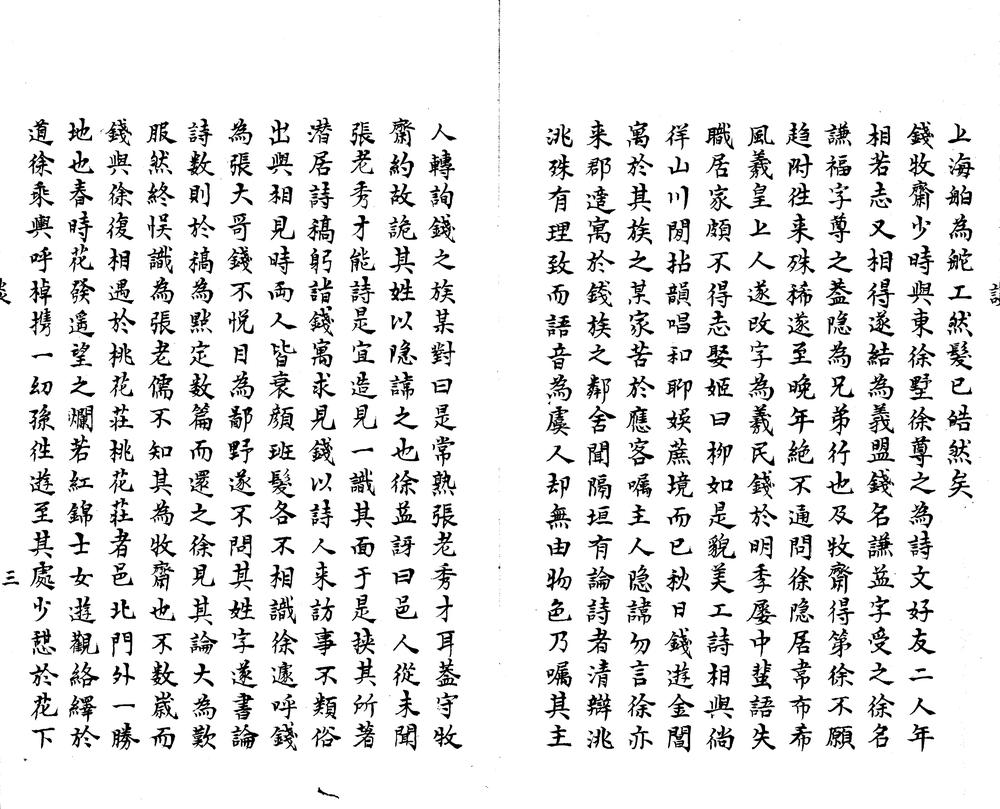 上海舶為舵工然髮已皓然矣
錢牧齋少時與東徐墅徐尊之為詩文好友二人年
相若志又相得遂結為義盟錢名謙益字受之徐名
謙福字尊之益隐為兄弟行也及牧齋得第徐不願
趋附徃来殊稀遂至晚年絶不通問徐隐居韋布希
風羲皇上人遂改字為羲民錢於明季屡中蜚語失
職居家頗不得志娶姬曰柳如是貌美工詩相與徜
徉山川閒拈韻唱和聊娱蔗境而已秋日錢遊金閶
寓於其族之某家苦於應客嘱主人隐諱勿言徐亦
来郡遑寓於錢族之鄰舍聞隔垣有論詩者清辯洮
洮殊有理致而語音為虞人却無由物色乃嘱其主
人轉詢錢之族某對曰是常熟張老秀才耳葢守牧
齋約故詭其姓以隐諱之也徐益訝曰邑人從未聞
張老秀才能詩是宜造見一識其面于是挾其所著
潜居詩稿躬詣錢寓求見錢以詩人来訪事不類俗
出與相見時両人皆衰顔班髮各不相識徐遽呼錢
為張大哥錢不悦目為鄙野遂不問其姓字遂書論
詩数則於稿為㸃定数篇而還之徐見其論大為歎
服然終悮識為張老儒不知其為牧齋也不数嵗而
錢與徐復相遇於桃花莊桃花莊者邑北門外一勝
地也春時花發遥望之爛若紅錦士女遊觀絡繹於
道徐乘興呼棹携一幼孫徃遊至其處少憇於花下
三